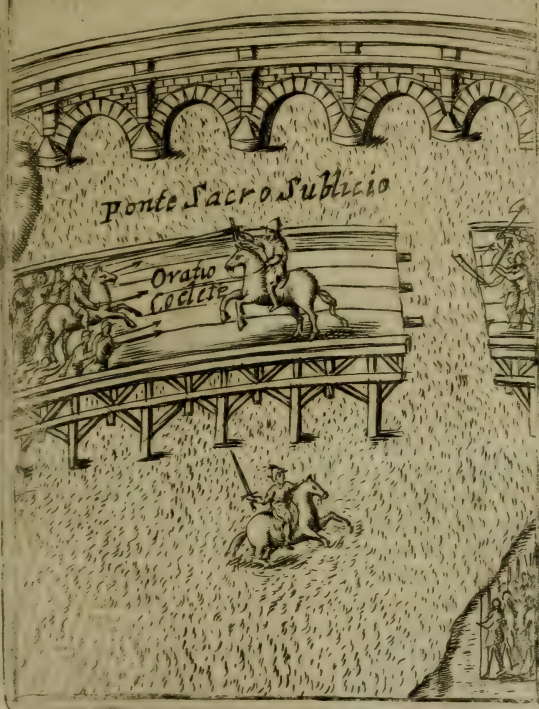 Ponte Sacro Sublicio
Oratio
Coclite